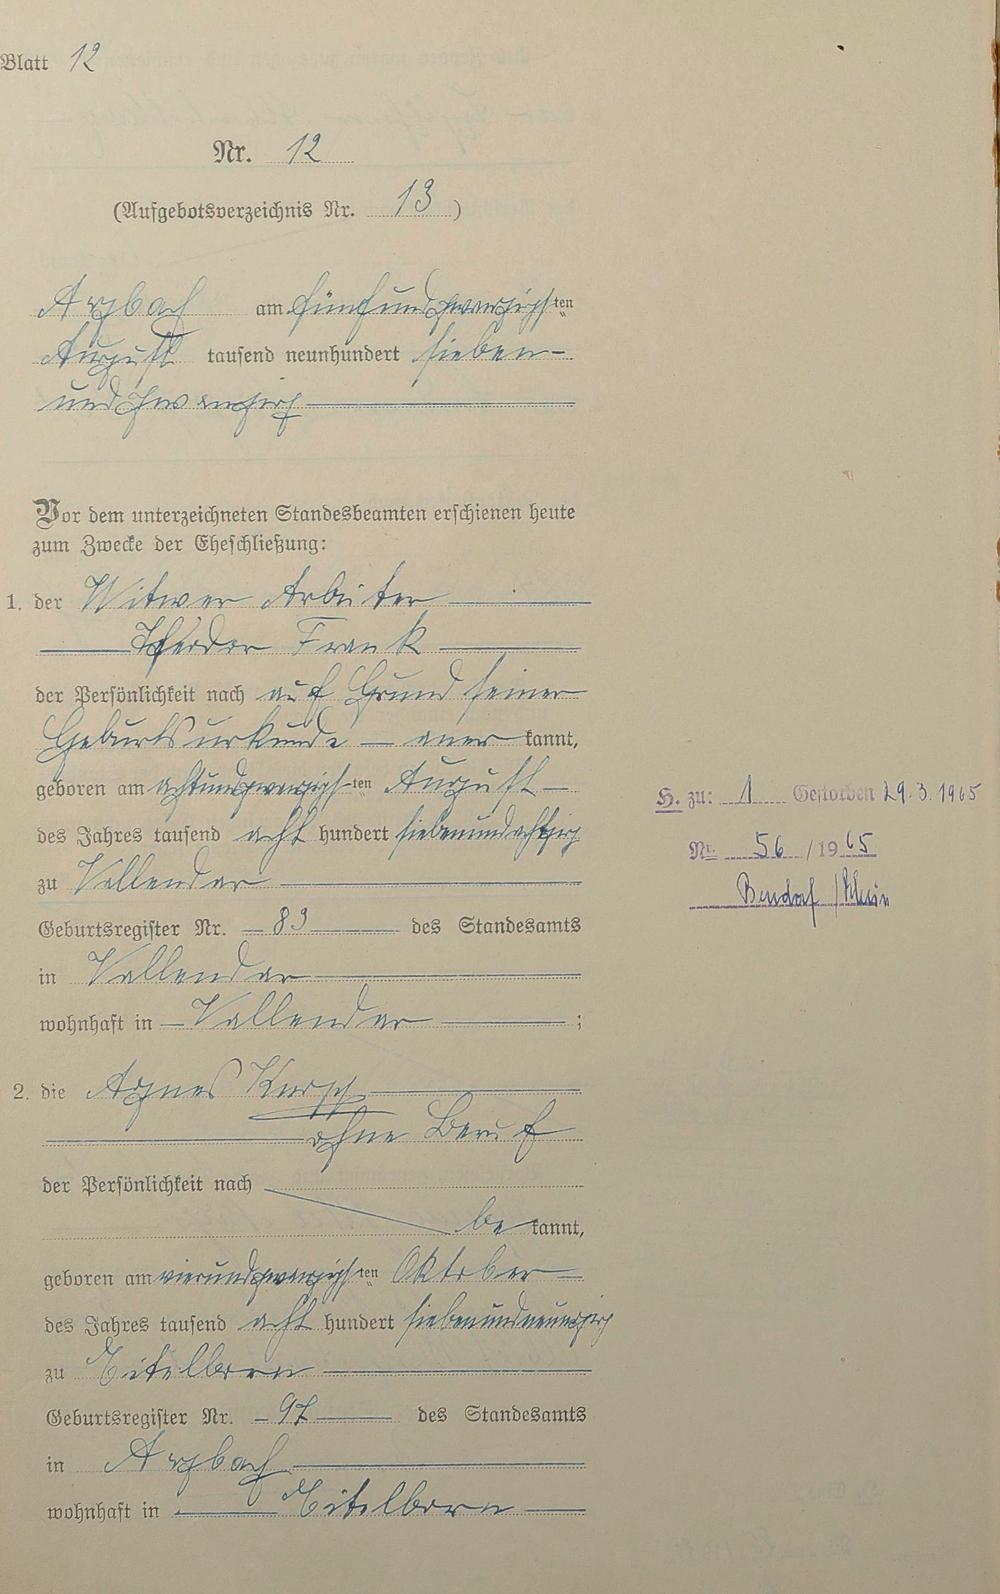 Blatt 12
Nr. 12
(Aufgebotsverzeichnis Nr. 13)
Arzbach am fünfundzwanzigsten
August tausend neunhundert sieben-
undzwanzig
Vor dem unterzeichneten Standesbeamten erschienen heute
zum Zwecke der Eheschließung:
1. der Witwer Arbeiter
Theodor Frank
der Persönlichkeit nach auf Grund seiner
Geburtsurkunde — aner kannt,
geboren am achtundzwanzigsten August
des Jahres tausend acht hundert siebenundachtzig
zu Vallendar
Geburtsregister Nr. 83 des Standesamts
in Vallendar
wohnhaft in Vallendar ;
H. zu: 1 Gestorben 29.3.1965
Nr. 56 / 1965
Bendorf / Rhein
2. die Agnes
ohne Beruf
der Persönlichkeit nach
be kannt,
geboren am vierundzwanzigsten Oktober
des Jahres tausend acht hundert siebenundneunzig
zu Eitelborn
Geburtsregister Nr. 97 des Standesamts
in Arzbach
wohnhaft in Eitelborn